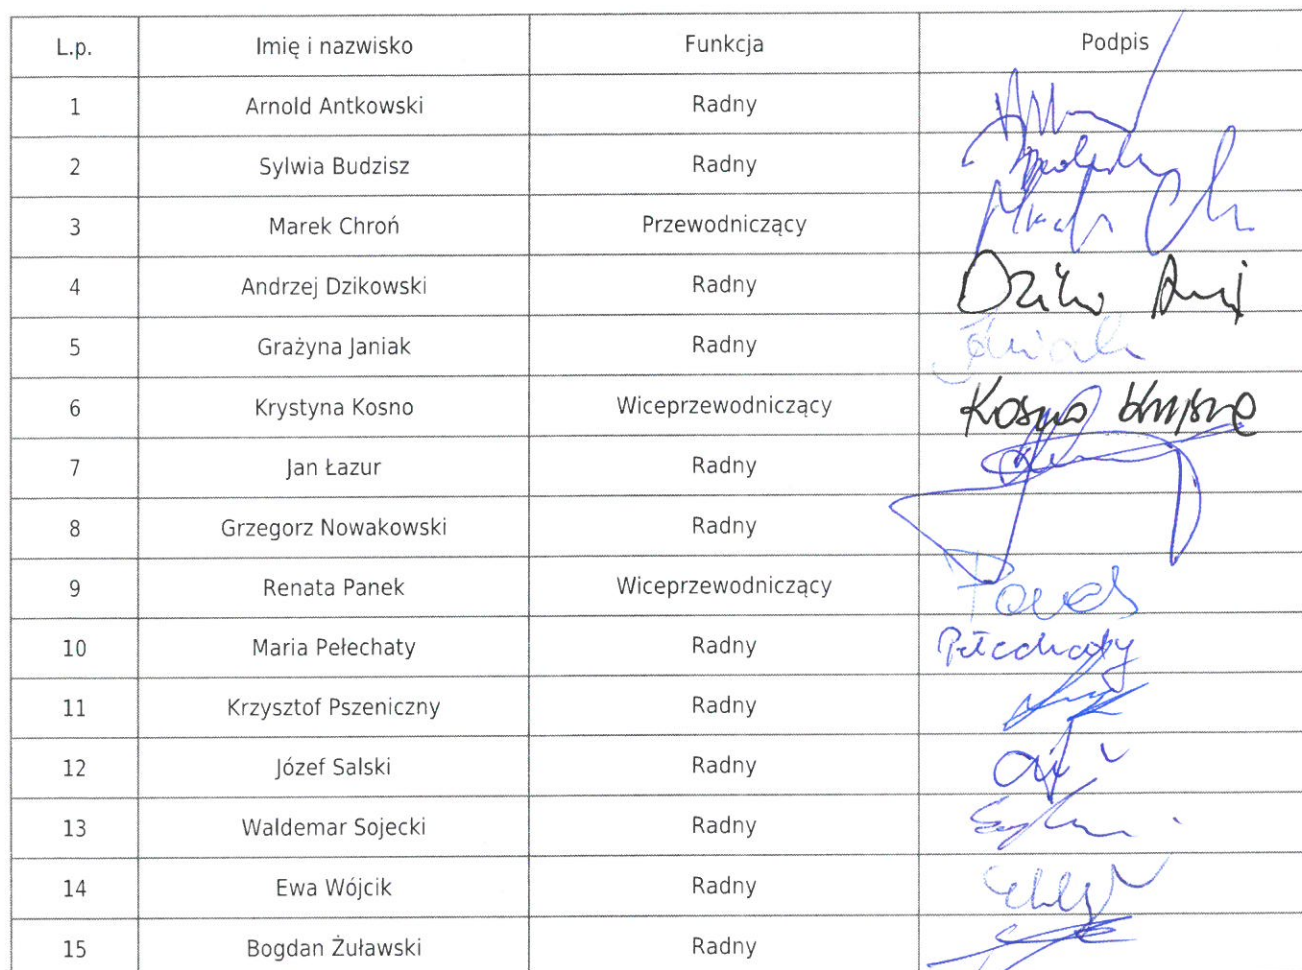 L.p. Imię i nazwisko Funkcja Podpis
1 Arnold Antkowski Radny
2 Sylwia Budzisz Radny
3 Marek Chroń Przewodniczący
4 Andrzej Dzikowski Radny
5 Grażyna Janiak Radny Janiak
6 Krystyna Kosno Wiceprzewodniczący Kosno
7 Jan Łazur Radny
8 Grzegorz Nowakowski Radny
9 Renata Panek Wiceprzewodniczący
10 Maria Pełechaty Radny Pełechaty
11 Krzysztof Pszeniczny Radny
12 Józef Salski Radny
13 Waldemar Sojecki Radny
14 Ewa Wójcik Radny
15 Bogdan Żuławski Radny